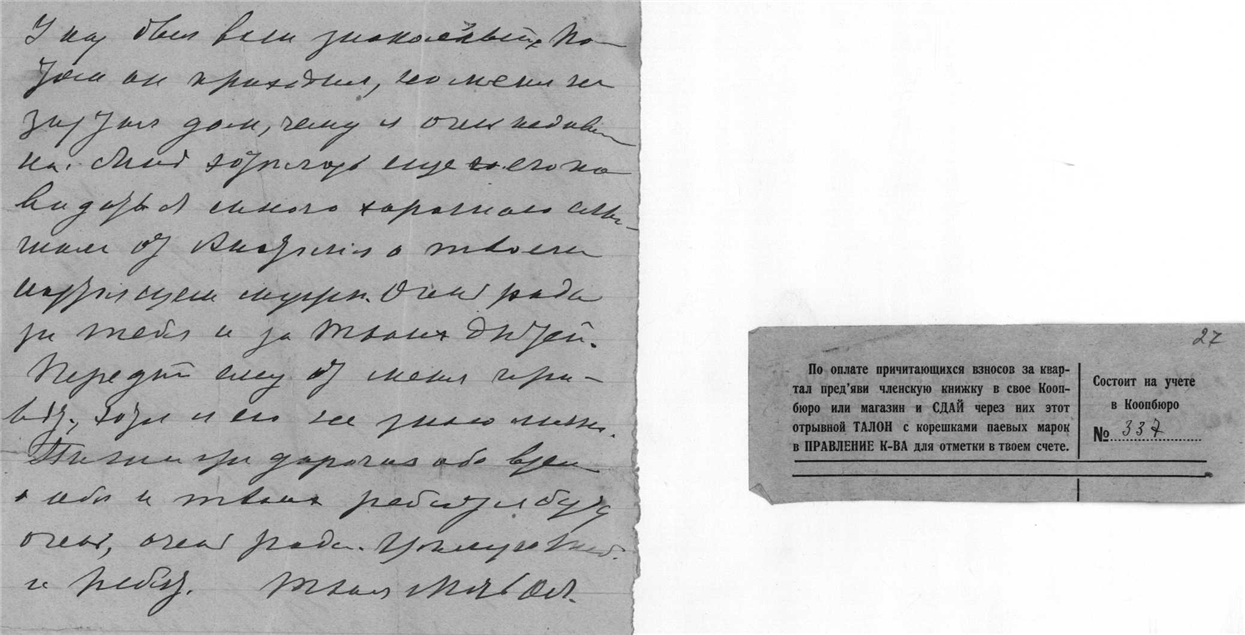 У нас был ваш знакомый. По-
том он приходил, но меня не
застал дома, чему я очень
Мне хотелось еще его по-
видать. Я много хорошего слы-
шала от о твоем
муже. Очень рада
за тебя и за твоих детей.
Передай ему от меня при-
вет, хотя я его не знаю лично.
Пиши дорогая обо всем
о себе и твоих ребятах буду
очень, очень рада. Целую тебя
и ребят. Твоя
27
По оплате причитающихся взносов за квар-
тал пред'яви членскую книжку в свое Кооп-
бюро или магазин и СДАЙ через них этот
отрывной ТАЛОН с корешками паевых марок
в ПРАВЛЕНИЕ К-ВА для отметки в твоем счете.
Состоит на учете
в Коопбюро
№ 337